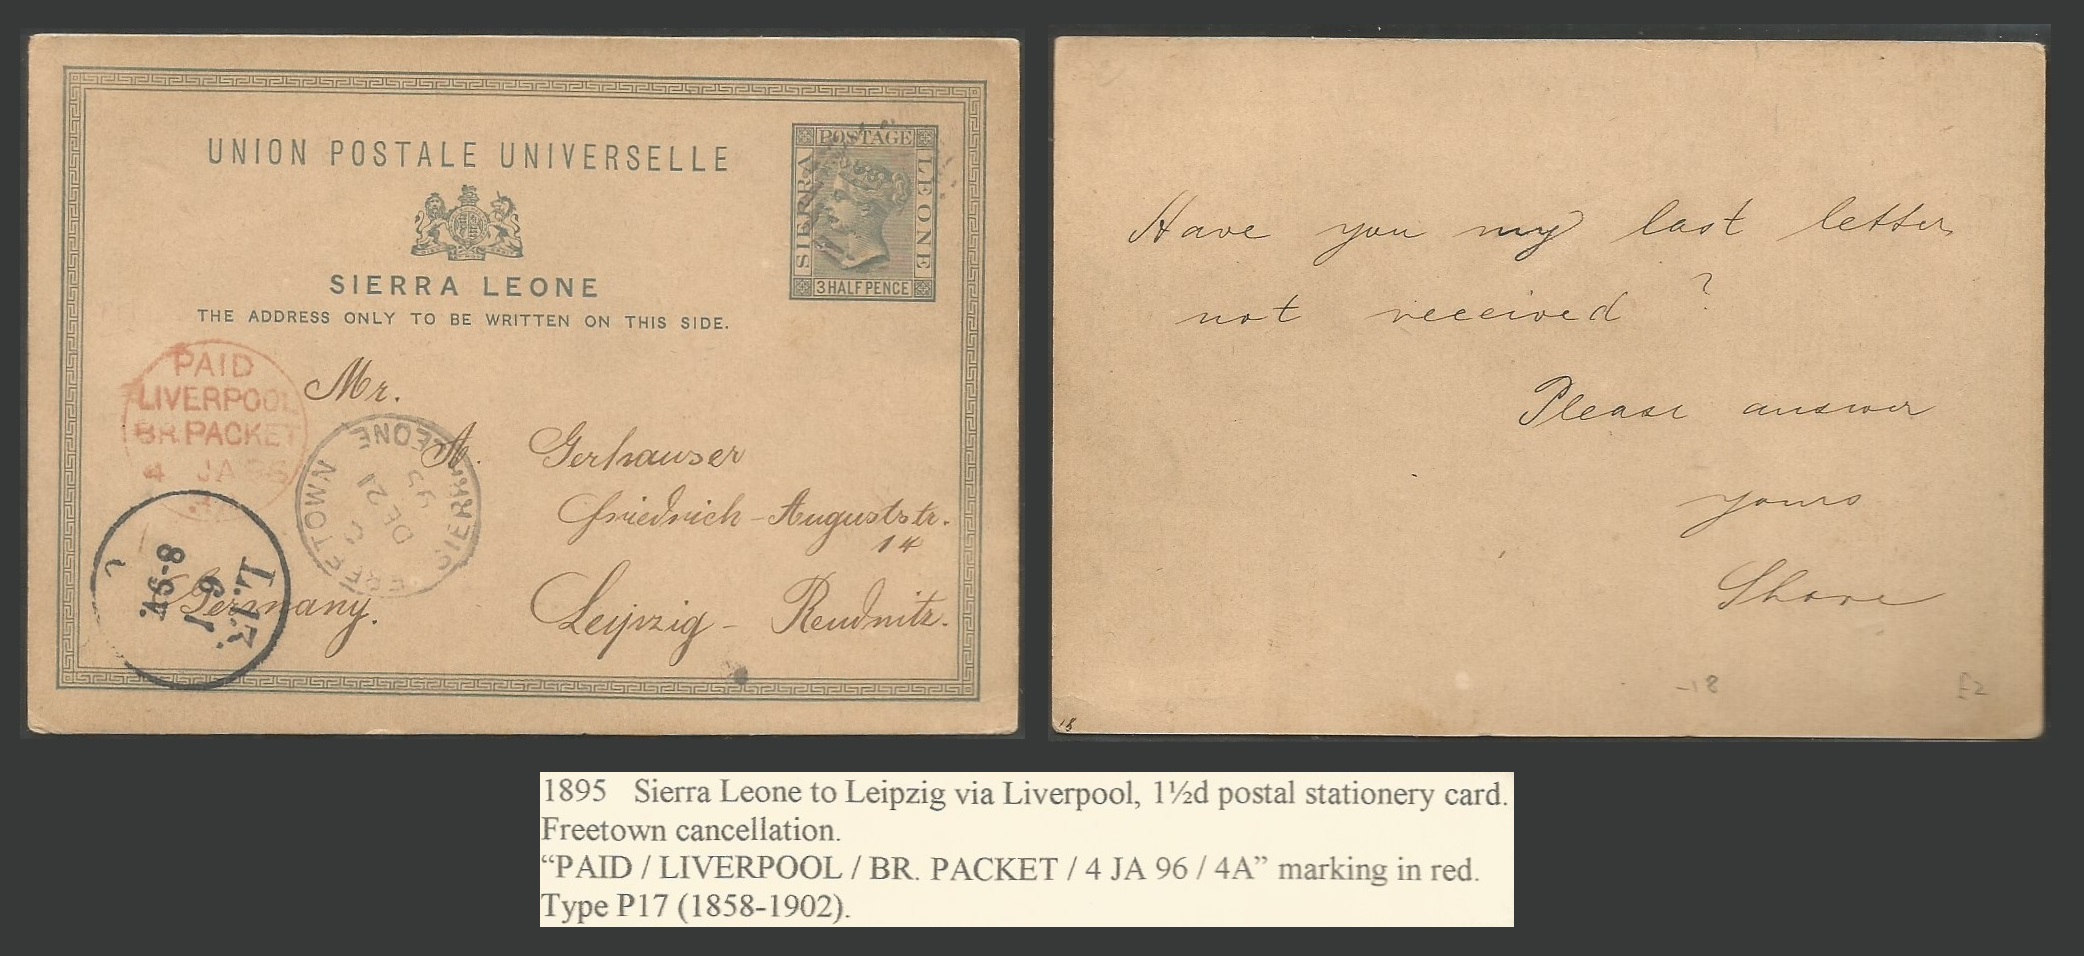 UNION POSTALE UNIVERSELLE
SIERRA LEONE
THE ADDRESS ONLY TO BE WRITTEN ON THIS SIDE.
POSTAGE
SIERRA
LEONE
3 HALFPENCE
PAID
LIVERPOOL
BR.PACKET
4 JA 96
FREETOWN
SIERRA LEONE
C
DE 21
95
6/1
8-9V.
Mr.
A. Gerhauser
Friedrich-Auguststr.
14
Leipzig - Reudnitz.
Germany.
Have you my last letter
not received?
Please answer
yours
Shore
-18
E2
18
1895 Sierra Leone to Leipzig via Liverpool, 1½d postal stationery card.
Freetown cancellation.
“PAID / LIVERPOOL / BR. PACKET / 4 JA 96 / 4A” marking in red.
Type P17 (1858-1902).